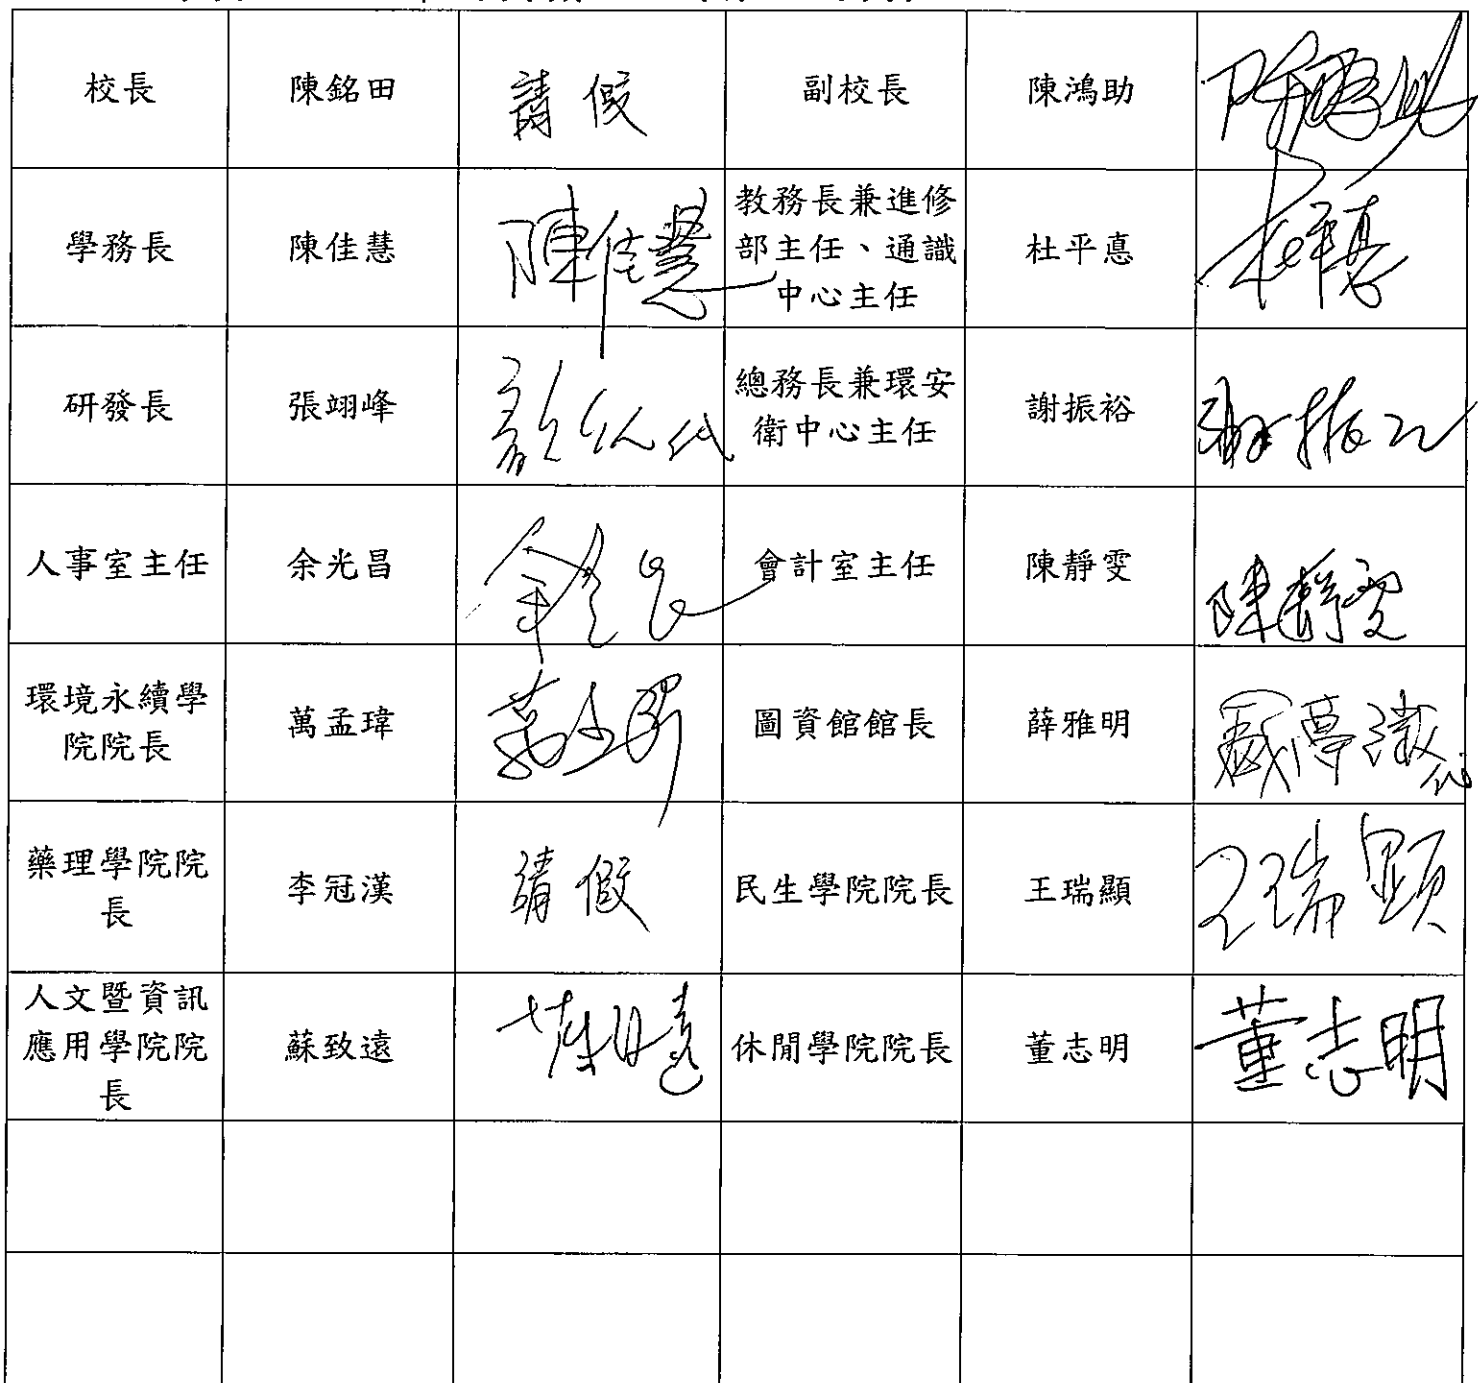 校長 陳銘田 請假 副校長 陳鴻助 陳鴻助
學務長 陳佳慧 陳佳慧 教務長兼進修
部主任、通識
中心主任 杜平悳 杜平悳
研發長 張翊峰 代 總務長兼環安
衛中心主任 謝振裕 謝振
人事室主任 余光昌 余光昌 會計室主任 陳靜雯 陳靜雯
環境永續學
院院長 萬孟瑋 萬孟瑋 圖資館館長 薛雅明 代
藥理學院院
長 李冠漢 請假 民生學院院長 王瑞顯 王瑞顯
人文暨資訊
應用學院院
長 蘇致遠 休閒學院院長 董志明 董志明